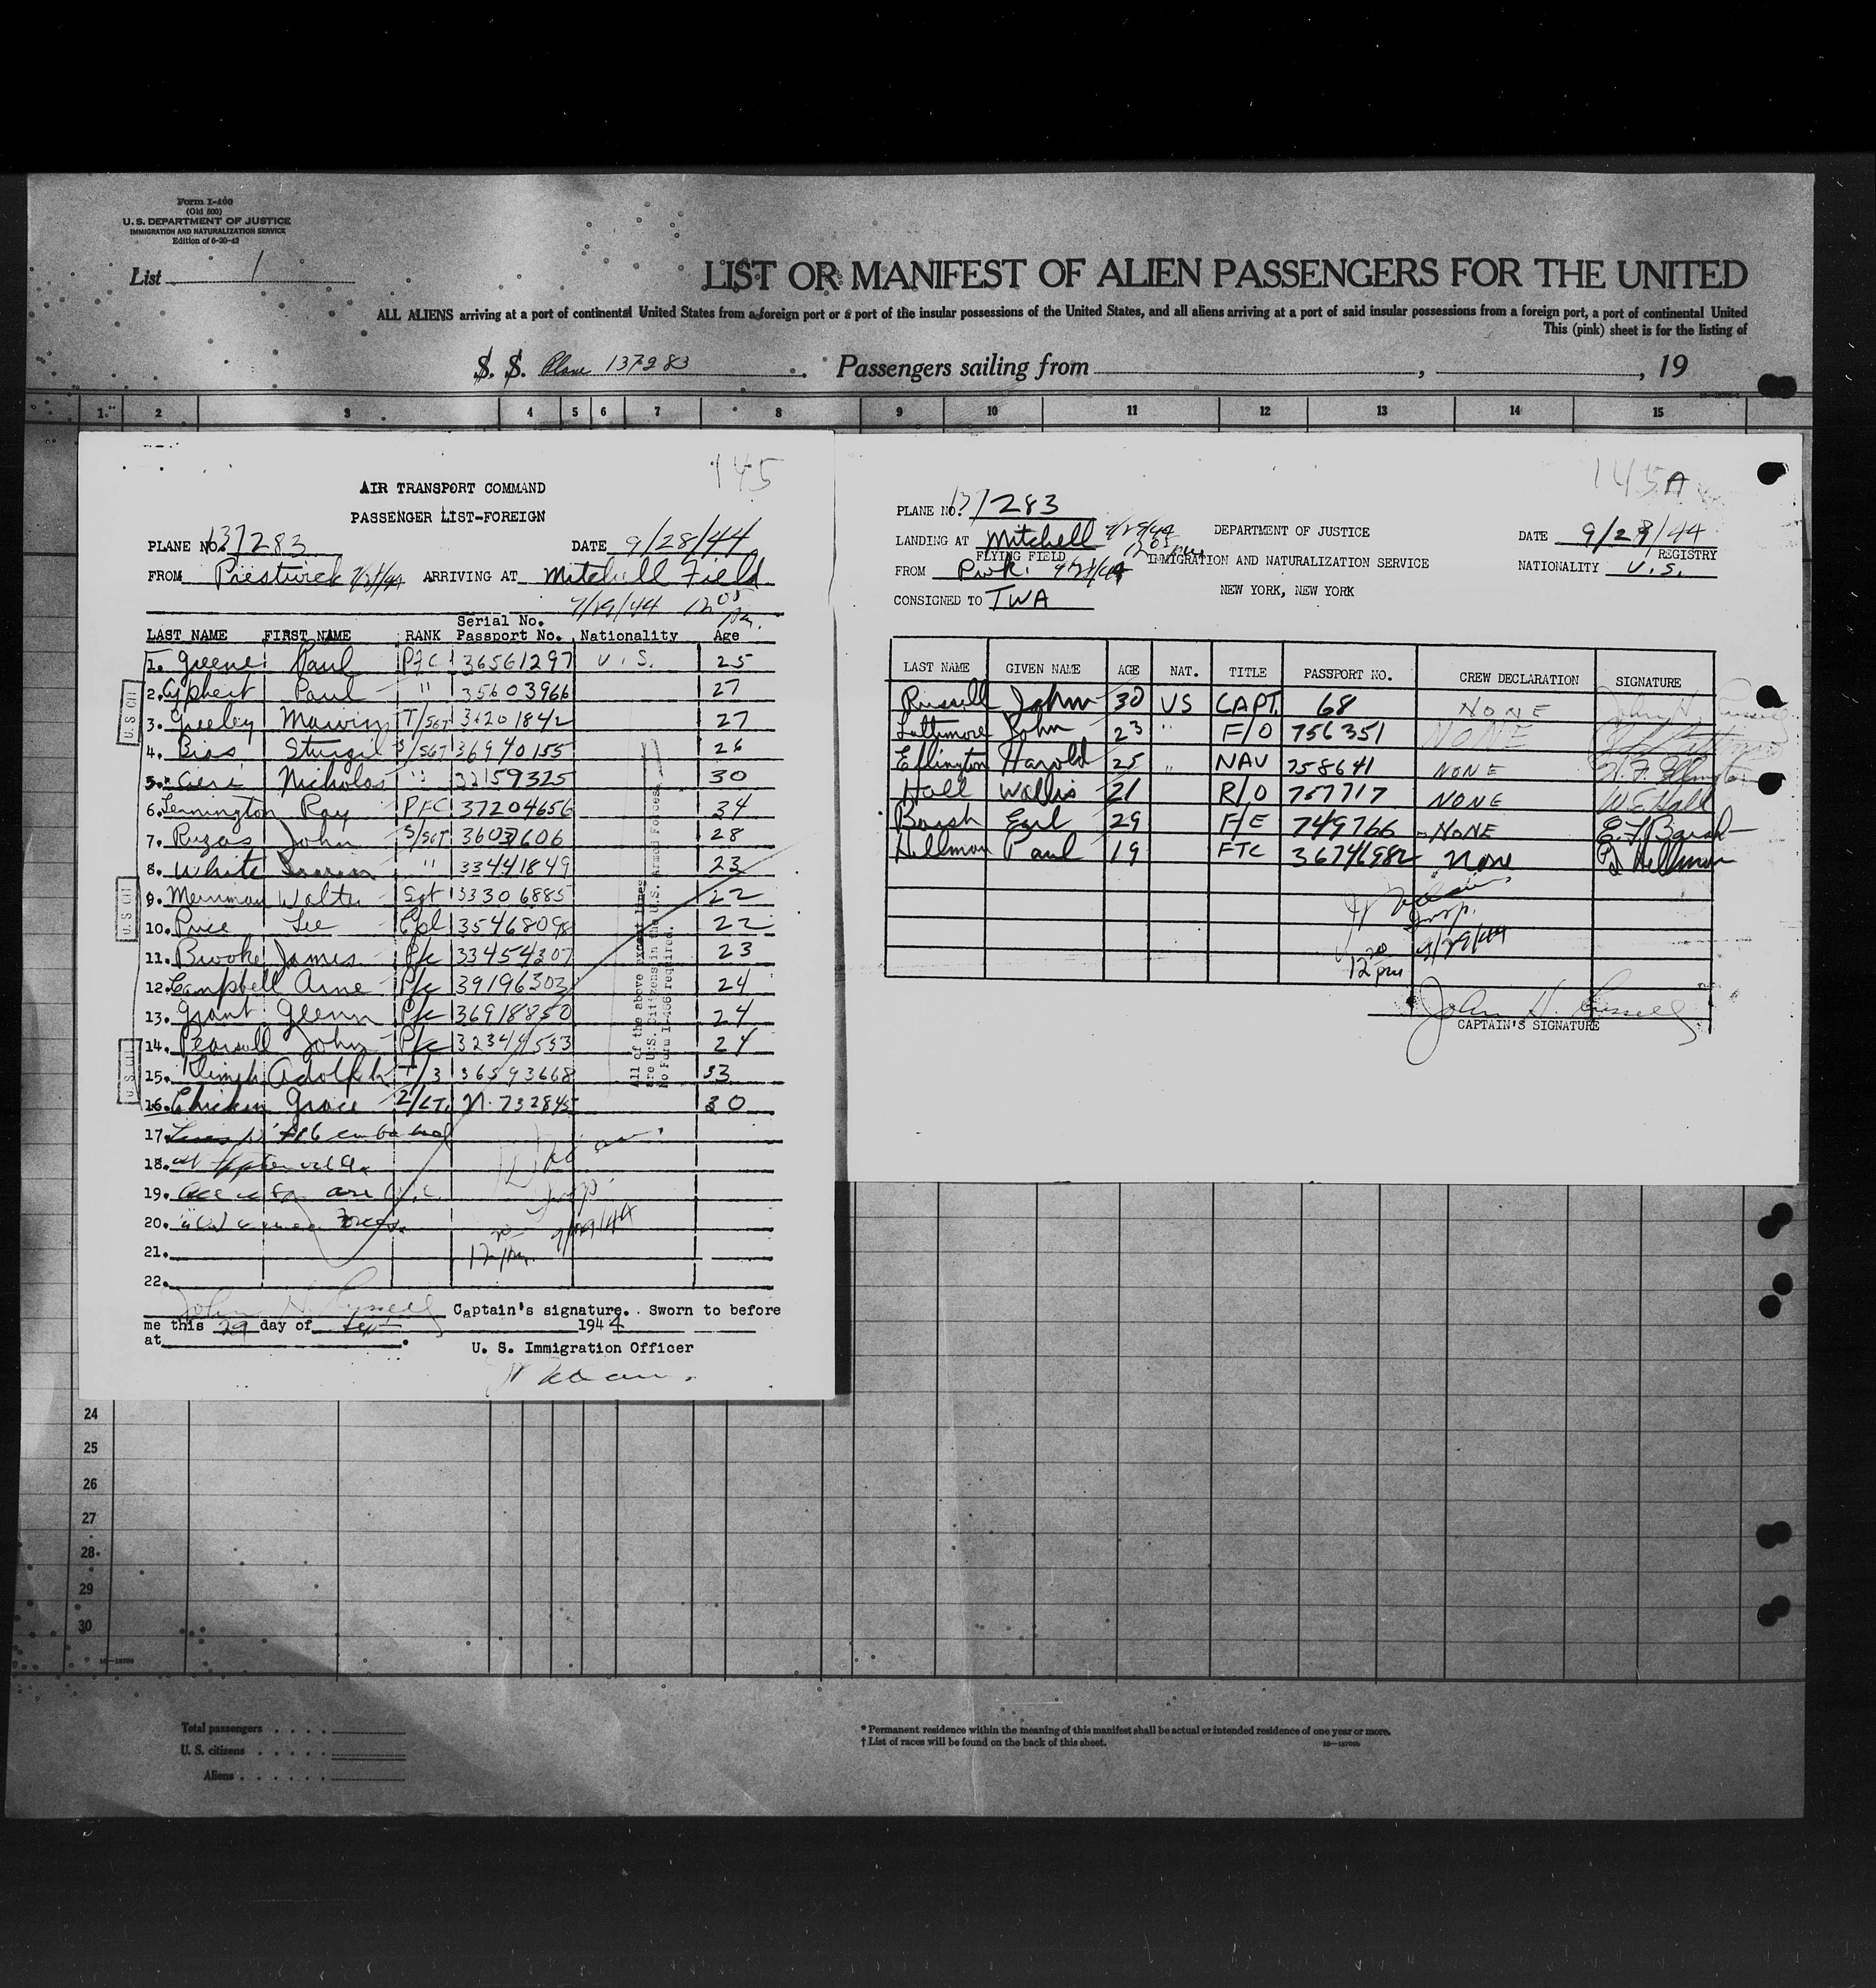 Form I-400
(Old 500)
U. S. DEPARTMENT OF JUSTICE
IMMIGRATION AND NATURALIZATION SERVICE
Edition of 6-20-42
List 1
LIST OR MANIFEST OF ALIEN PASSENGERS FOR THE UNITED
ALL ALIENS arriving at a port of continental United States from a foreign port or a port of the insular possessions of the United States, and all aliens arriving at a port of said insular possessions from a foreign port, a port of continental United
This (pink) sheet is for the listing of
S. S. Plane 137283 Passengers sailing from , , 19
1 2 3 4 5 6 7 8 9 10 11 12 13 14 15
145
AIR TRANSPORT COMMAND
PASSENGER LIST-FOREIGN
PLANE NO. 137283 DATE 9/28/44
FROM Prestwick 9/28/44 ARRIVING AT Mitchell Field
9/29/44 12 05 Pm.
LAST NAME FIRST NAME RANK Serial No. Passport No. Nationality Age
1. Greene Paul Pfc 36561297 U.S. 25
2. Paul " 35603966 27
3. Greeley Marvin T/SGT 31201842 27
4. Bias Sturgil S/SGT 36940155 26
5. Nicholas " 32159325 30
6. Lennington Ray PFC 37204656 34
7. Ruzas John S/SGT 28
8. White " 33441849 23
9. Merriman Walter Sgt 33306885 22
10. Price Lee Cpl 35468098 22
11. Brooke James Pfc 33454307 23
12. Campbell Arne Pfc 39196303 24
13. Grant Glenn Pfc 36918850 24
14. Pearsall John Pfc 24
15. Adolph T/3 36593668 33
16. Chicken Grace 2/LT. N-732845 30
17.
18. at
19. are
20. Forces
21.
22.
All of the above except lines
are U.S. Citizens in the U.S. Armed Forces.
No Form I-466 required.
Insp.
12 20 pm 9/29/44
John H. Russell Captain's signature. Sworn to before
me this 29 day of Sept 1944
at .
U. S. Immigration Officer
145A
PLANE NO. 137283
LANDING AT Mitchell 9/29/44 12 05 pm
FLYING FIELD
FROM Pwk. 9/28/44
CONSIGNED TO TWA
DEPARTMENT OF JUSTICE
IMMIGRATION AND NATURALIZATION SERVICE
NEW YORK, NEW YORK
DATE 9/29/44
REGISTRY
NATIONALITY U.S.
LAST NAME GIVEN NAME AGE NAT. TITLE PASSPORT NO. CREW DECLARATION SIGNATURE
Russell John 30 US CAPT. 68 NONE John H. Russell
Lattimore John 23 " F/O 756351 NONE
Ellington Harold 25 " NAV 758641 NONE H. F. Ellington
Hall Wallis 21 R/O 757717 NONE W E Hall
Barsh Earl 29 F/E 749766 NONE E F Barsh
Hellman Paul 19 FTC 36746982 None P Hellman
Insp.
12 20 pm 9/29/44
John H. Russell
CAPTAIN'S SIGNATURE
24
25
26
27
28
29
30
Total passengers
U. S. citizens
Aliens
* Permanent residence within the meaning of this manifest shall be actual or intended residence of one year or more.
† List of races will be found on the back of this sheet.